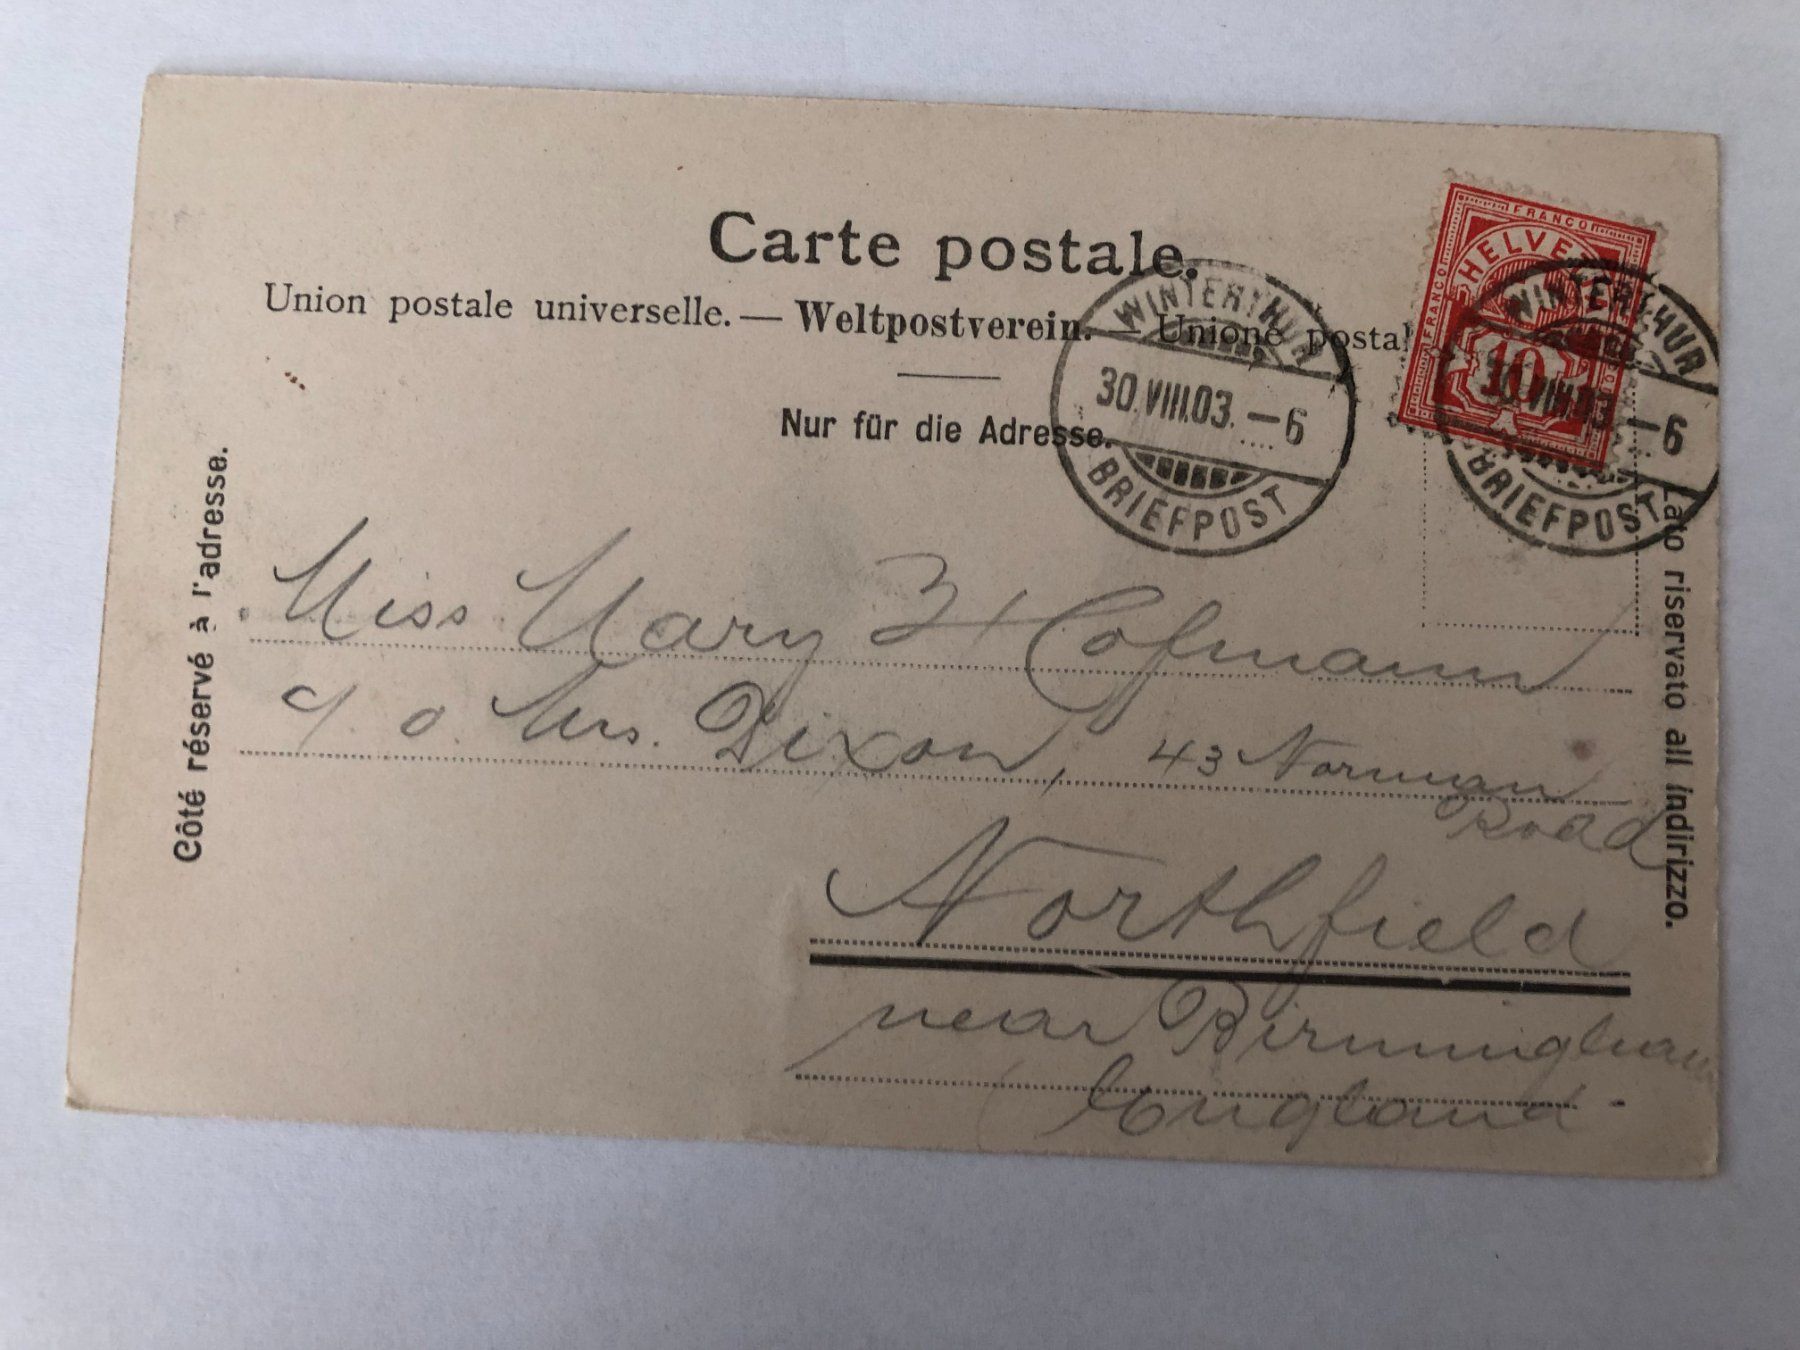 Carte postale.
Union postale universelle. — Weltpostverein. — Unione postal
Nur für die Adresse.
FRANCO
HELVETIA
FRANCO
10
WINTERTHUR
30.VIII.03.—6
BRIEFPOST
WINTERTHUR
30.VIII.03.—6
BRIEFPOST
Côté réservé à l'adresse.
Lato riservato all indirizzo.
Miss Mary Hofmann
c/o. Mrs. Dixon, 43 Norman
Road
Northfield
near Birmingham
England